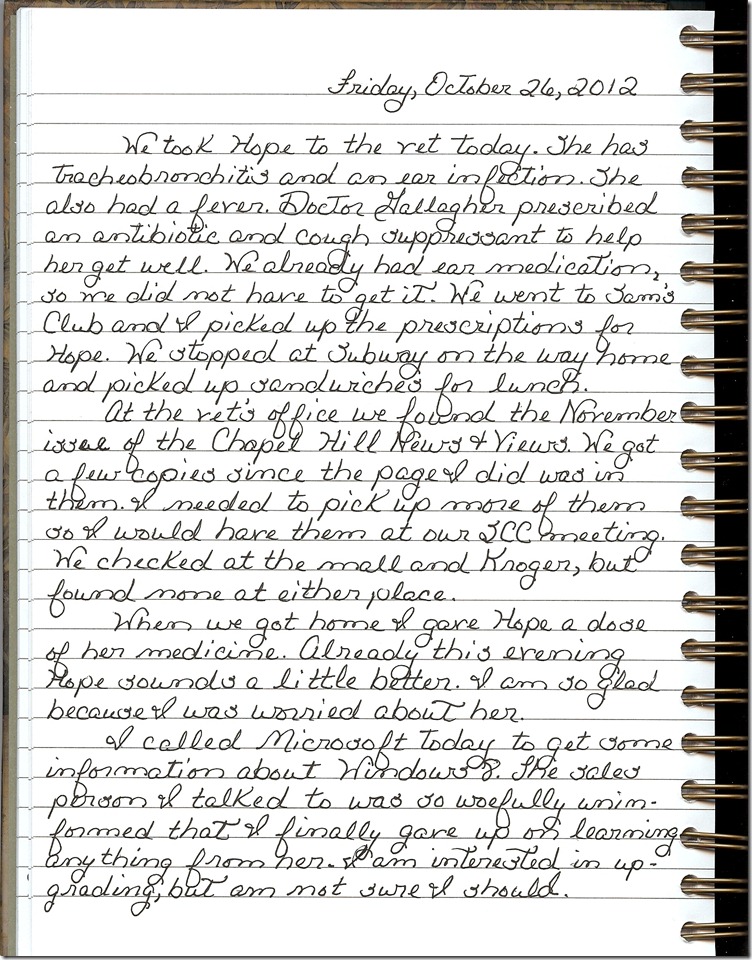 Friday, October 26, 2012
We took Hope to the vet today. She has
tracheobronchitis and an ear infection. She
also had a fever. Doctor Gallagher prescribed
an antibiotic and cough suppressant to help
her get well. We already had ear medication,
so we did not have to get it. We went to Sam's
Club and I picked up the prescriptions for
Hope. We stopped at Subway on the way home
and picked up sandwiches for lunch.
At the vet's office we found the November
issue of the Chapel Hill News & Views. We got
a few copies since the page I did was in
them. I needed to pick up more of them
so I would have them at our SCC meeting.
We checked at the mall and Kroger, but
found none at either place.
When we got home I gave Hope a dose
of her medicine. Already this evening
Hope sounds a little better. I am so glad
because I was worried about her.
I called Microsoft today to get some
information about Windows 8. The sales
person I talked to was so woefully unin-
formed that I finally gave up on learning
anything from her. I am interested in up-
grading, but am not sure I should.